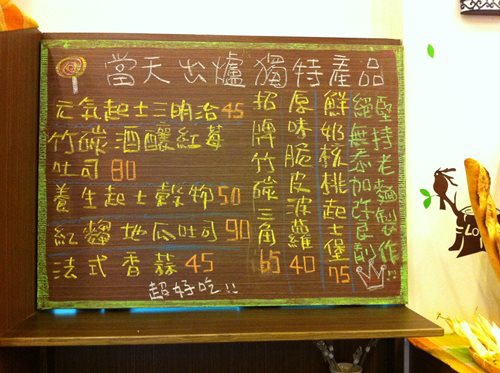 當天出爐獨特產品
元氣起士三明治45
竹碳酒釀紅莓
吐司80
養生起士穀物50
紅麴地瓜吐司90
法式香蒜45
超好吃!!
招牌竹碳三角65
原味脆皮波蘿40
鮮奶核桃起士堡75
絕無添加改良劑
堅持老麵製作!!